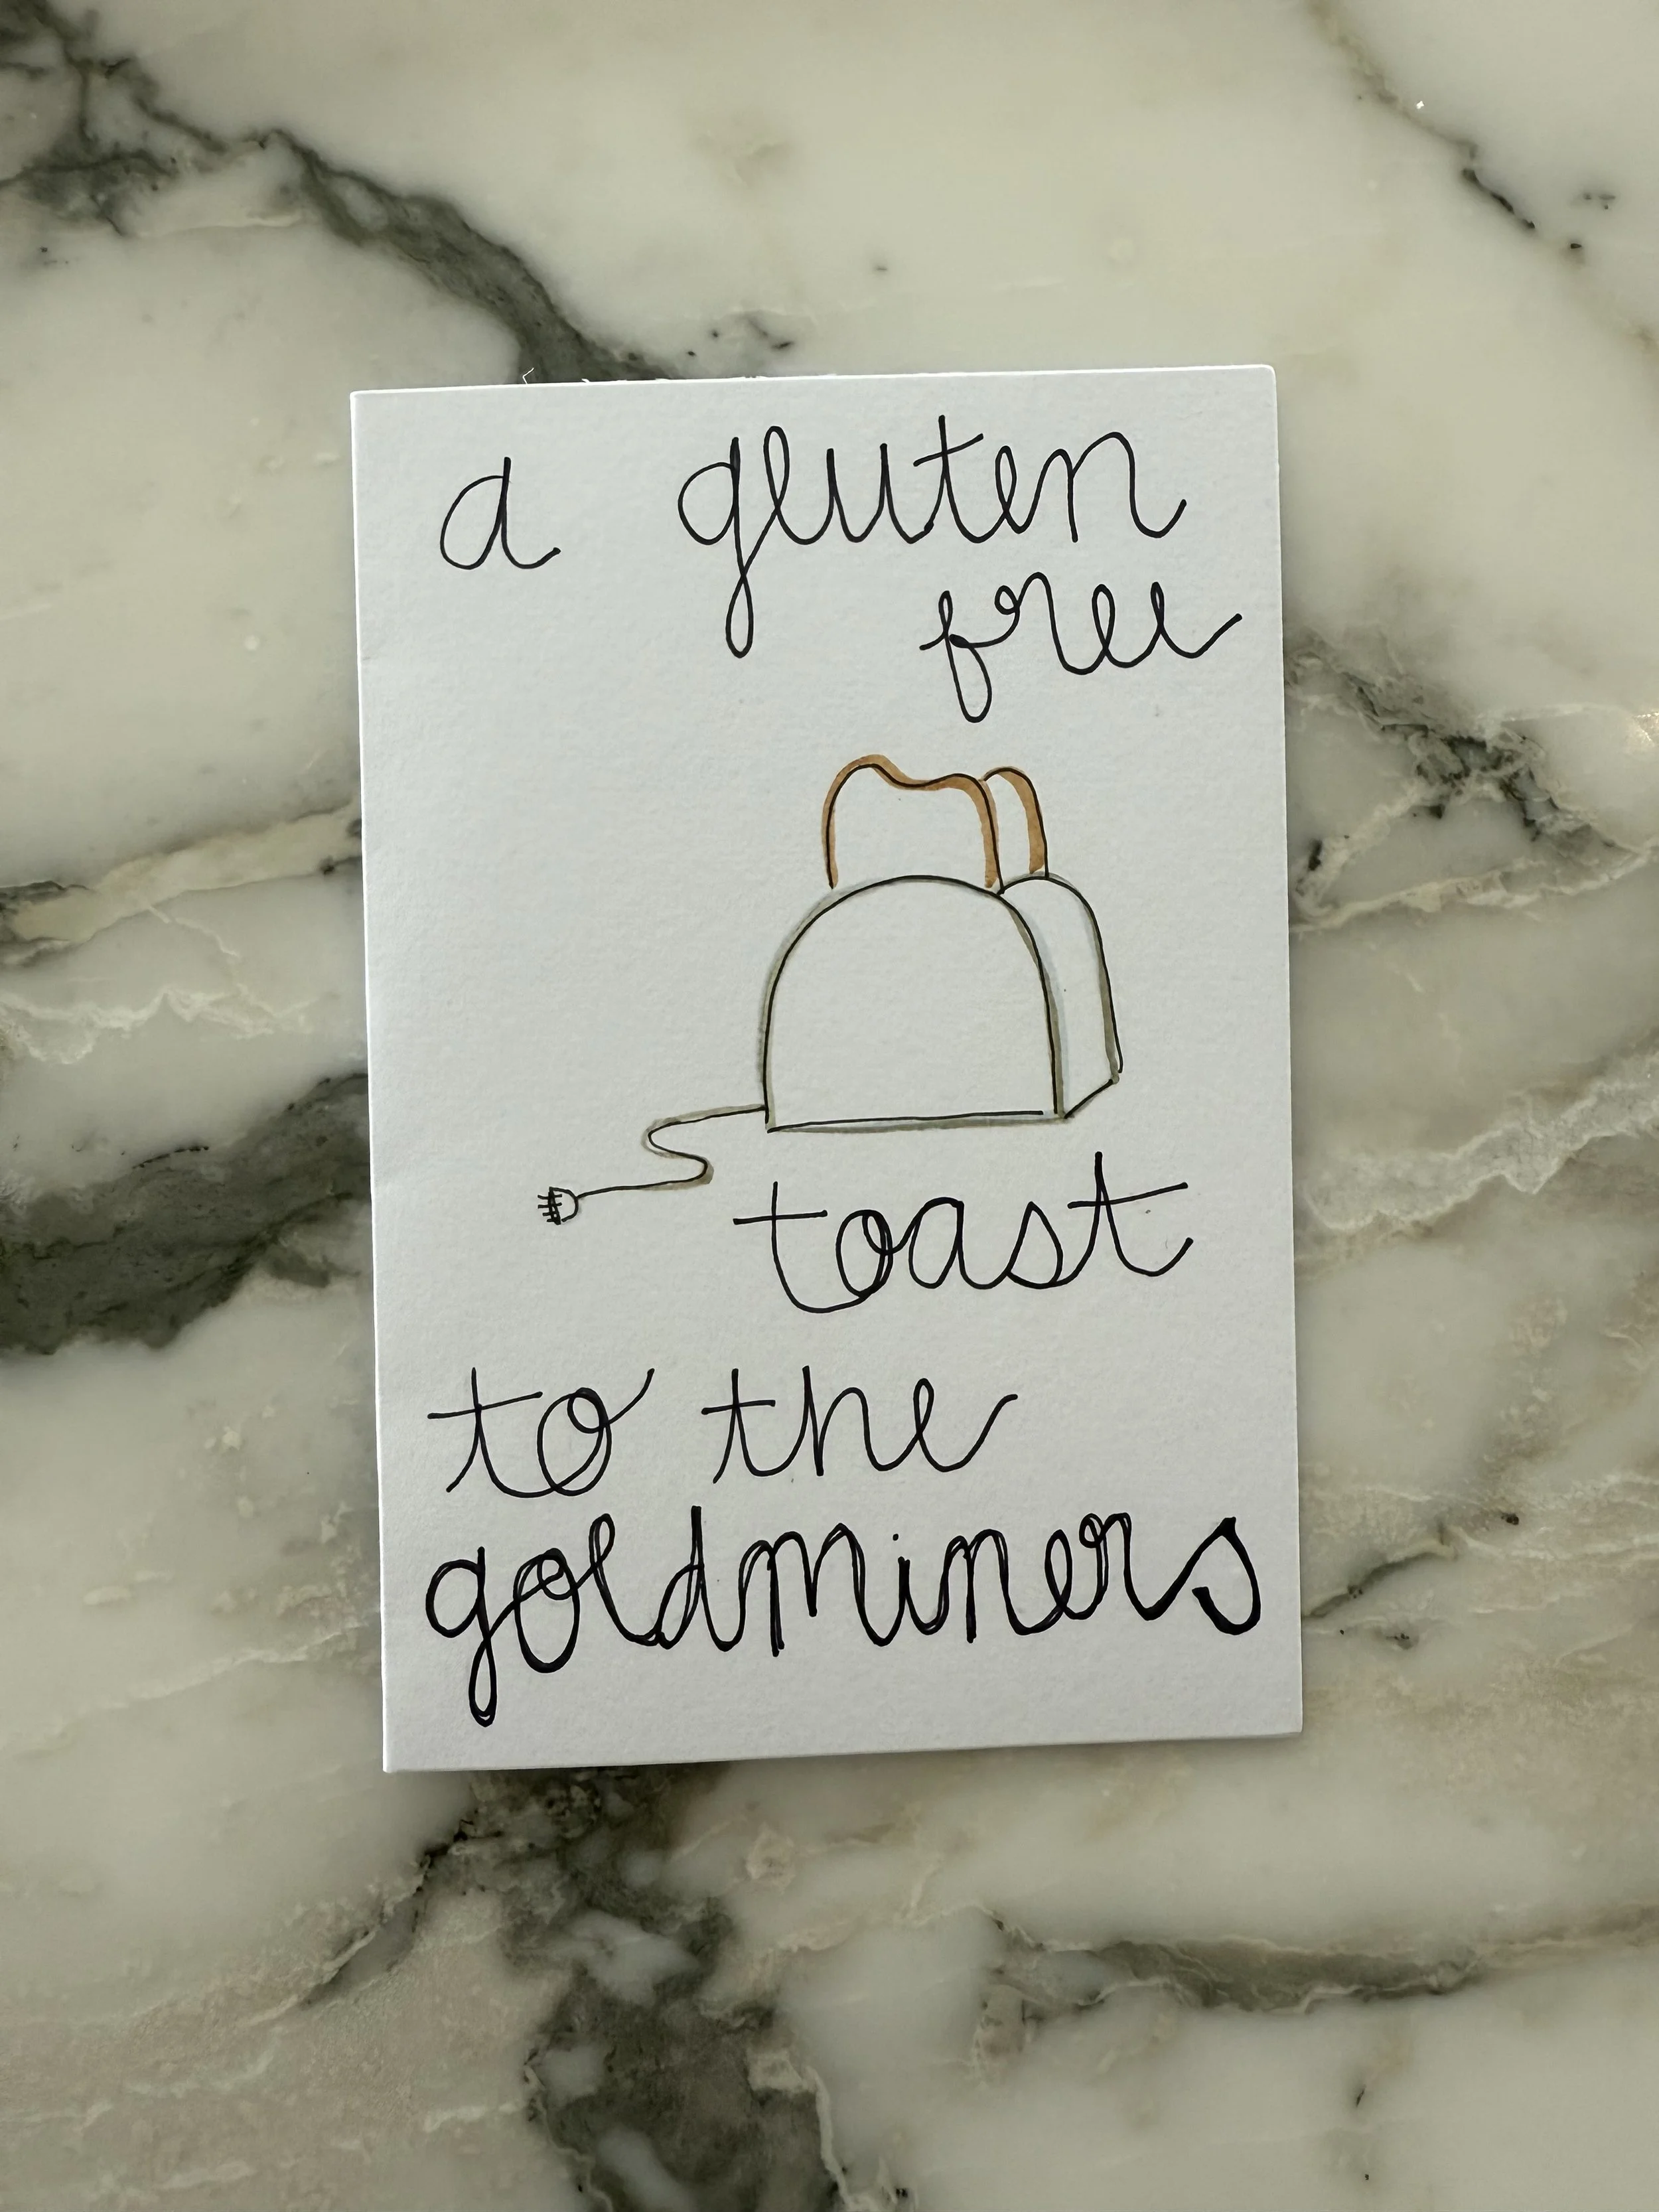 a gluten
free
toast
to the
goldminers